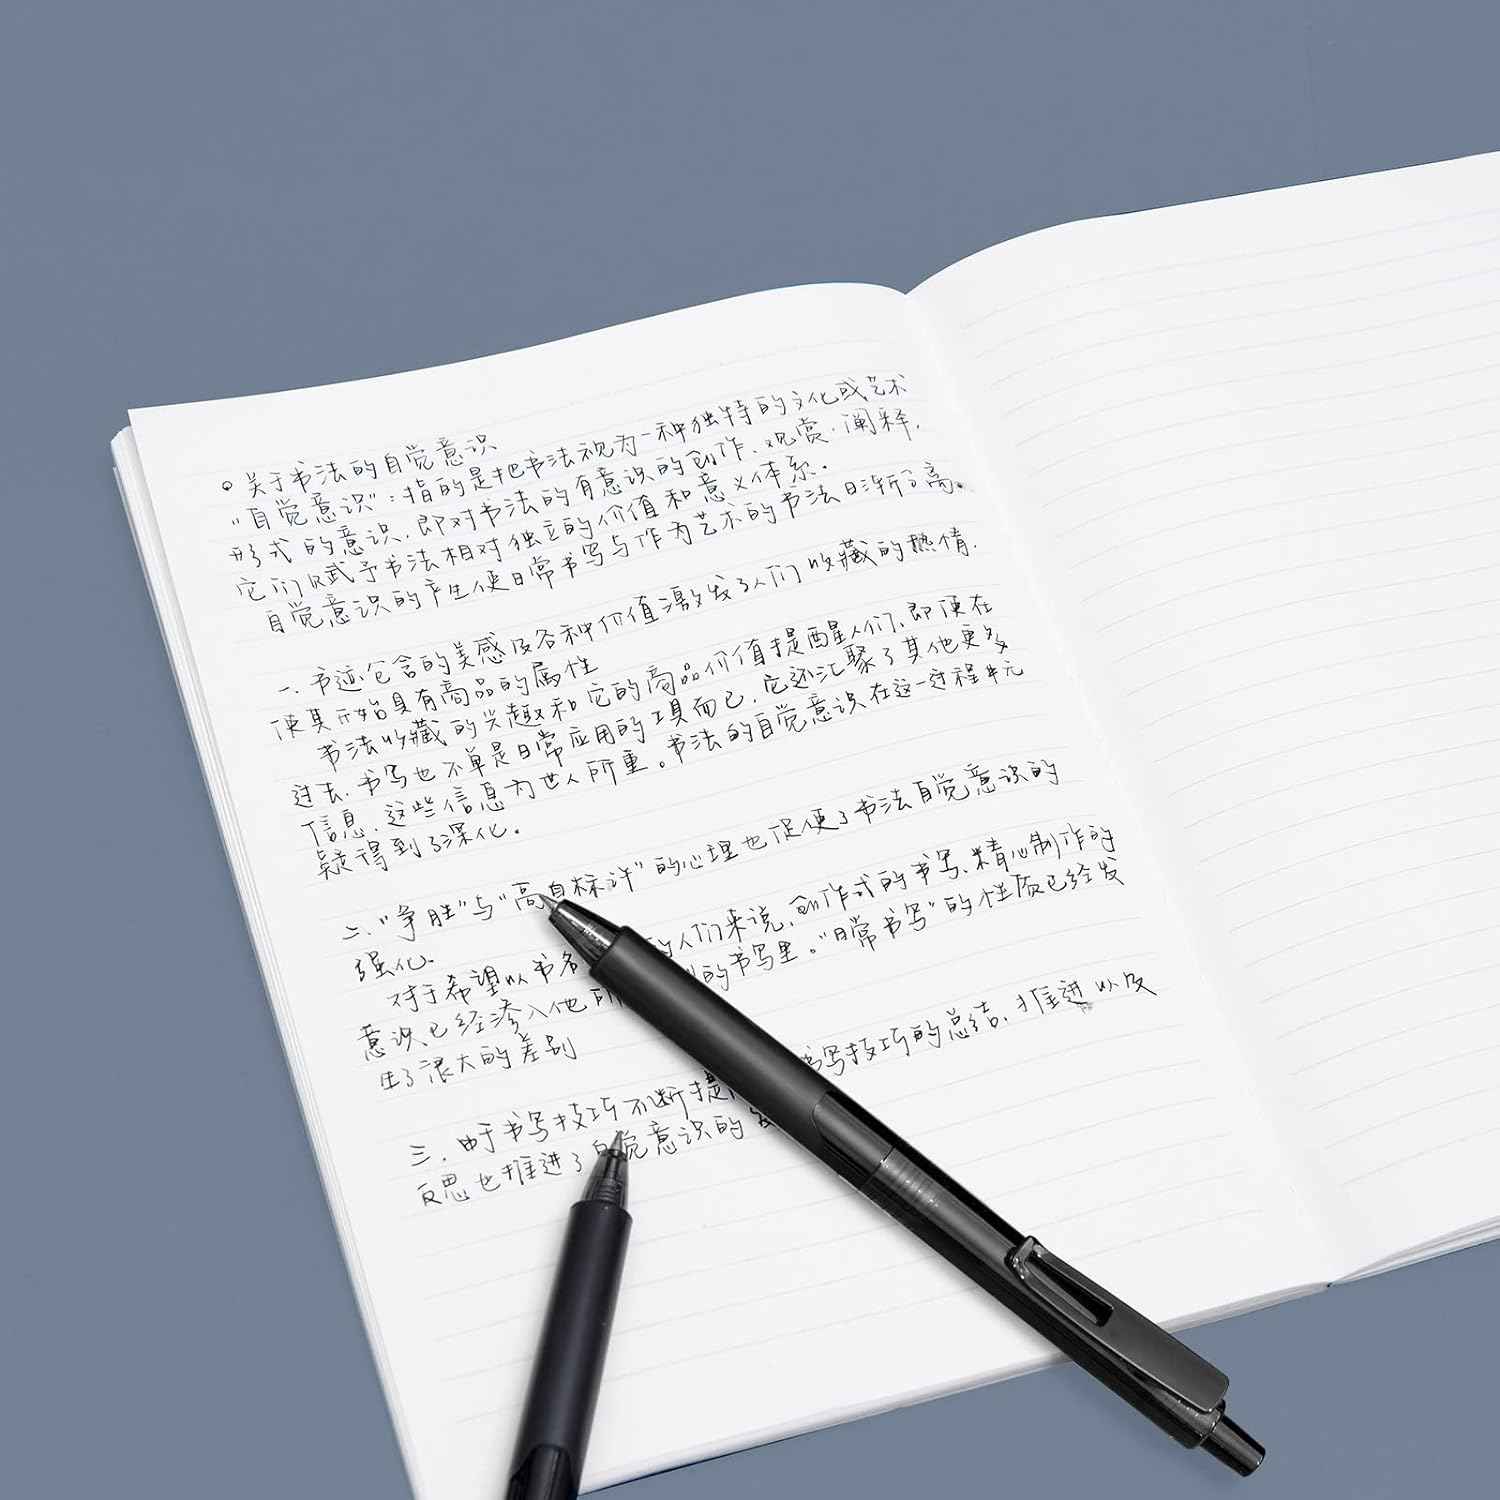 关于书法的自觉意识
"自觉意识"：指的是把书法视为一种独特的文化或艺术
形式的意识，即对书法的有意识的创作、观赏、阐释，
它们赋予书法相对独立的价值和意义体系。
自觉意识的产生使日常书写与作为艺术的书法日渐分离。
一、书迹包含的美感及各种价值激发了人们收藏的热情，
使其开始具有商品的属性
书法收藏的兴趣和它的商品价值提醒人们，即便在
过去，书写也不单是日常应用的工具而已，它还汇聚了其他更多
信息，这些信息为世人所重。书法的自觉意识在这一过程中无
疑得到了深化。
二、"争胜"与"高自标许"的心理也促使了书法自觉意识的
强化。
对于希望以书名 的人们来说，创作式的书写、精心制作的
意识已经渗入他 所 的书写里。"日常书写"的性质已经发
生了很大的差别
三、由于书写技巧不断提 书写技巧的总结、推进以及
反思也推进了自觉意识的